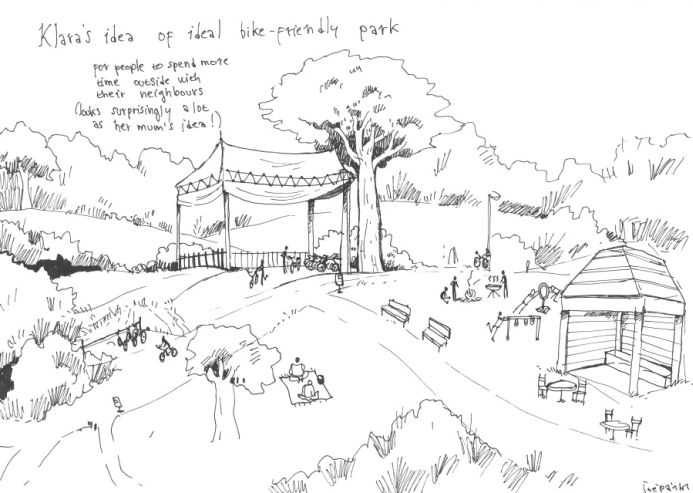 Klara's idea of ideal bike-friendly park
for people to spend more
time outside with
their neighbours
(looks surprisingly a lot
as her mum's idea!)